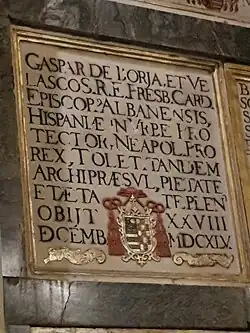 GASPAR DE BORJA, ET VE
LASCO S. R. E. PRESB. CARD.
EPISCOP⁹ ALBANENSIS,
HISPANIÆ IN VRBE PRO
TECTOR, NEAPOL. PRO
REX, TOLET. TANDEM
ARCHIPRÆSVL, PIETATE
ET ÆTATE PLEN⁹
OBIJT XXVIII
DECEMB MDCXLV